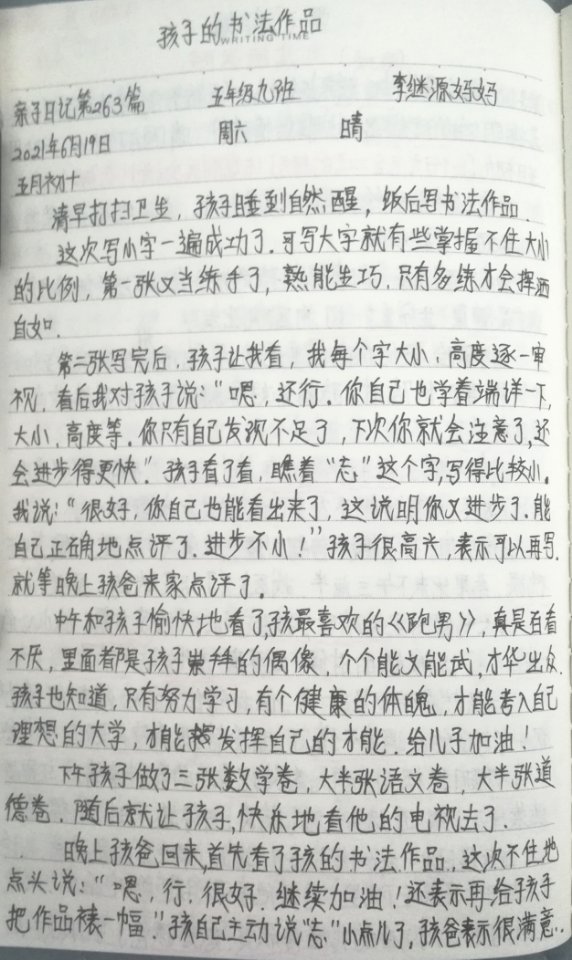 孩子的书法作品
WRITING TIME
亲子日记第263篇 五年级九班 李继源妈妈
2021年6月19日 周六 晴
五月初十
清早打扫卫生，孩子睡到自然醒，饭后写书法作品.
这次写小字一遍成功了.可写大字就有些掌握不住大小
的比例，第一张又当练手了，熟能生巧，只有多练才会挥洒
自如.
第二张写完后，孩子让我看，我每个字大小、高度逐一审
视，看后我对孩子说："嗯，还行.你自己也学着端详一下，
大小，高度等.你只有自己发现不足了，下次你就会注意了，还
会进步得更快".孩子看了看，瞧着"志"这个字，写得比较小。
我说："很好，你自己也能看出来了，这说明你又进步了.能
自己正确地点评了.进步不小！"孩子很高兴，表示可以再写.
就等晚上孩爸来家点评了。
中午和孩子愉快地看了，孩最喜欢的《跑男》，真是百看
不厌，里面都是孩子崇拜的偶像，个个能文能武，才华出众.
孩子也知道，只有努力学习，有个健康的体魄，才能考入自己
理想的大学，才能发挥自己的才能.给儿子加油！
下午孩子做了三张数学卷，大半张语文卷，大半张道
德卷.随后就让孩子，快乐地看他的电视去了.
晚上孩爸回来，首先看了孩的书法作品，这次不住地
点头说："嗯，行.很好.继续加油！还表示再给孩子
把作品裱一幅."孩自己主动说"志"小点儿了，孩爸表示很满意..